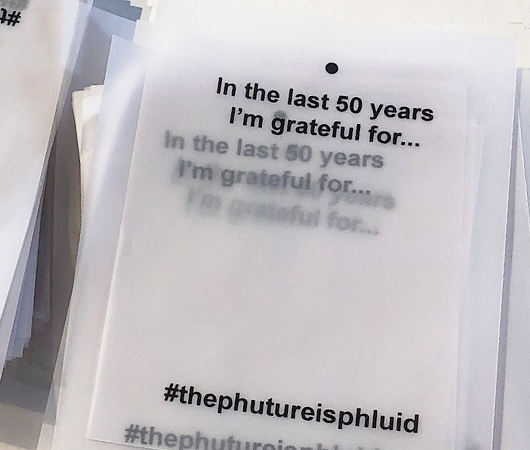 #t
In the last 50 years
I'm grateful for...
In the last 50 years
I'm grateful for...
years
I'm grateful for...
#thephutureisphluid
#thephutureisphluid